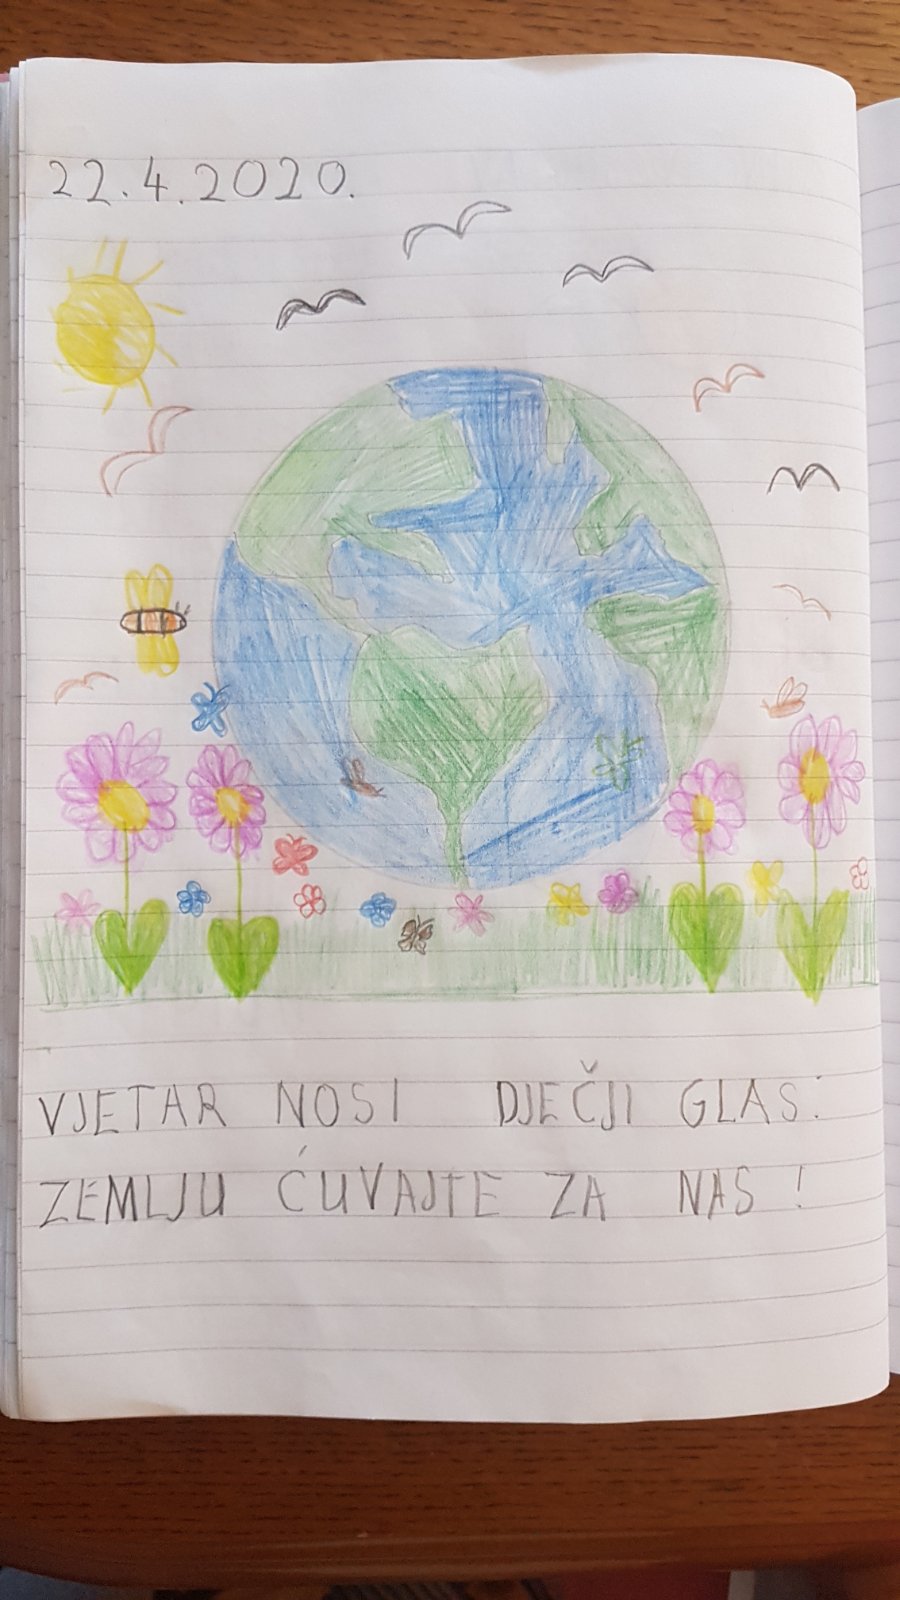 22.4.2020.
VJETAR NOSI DJEČJI GLAS:
ZEMLJU ĆUVAJTE ZA NAS!